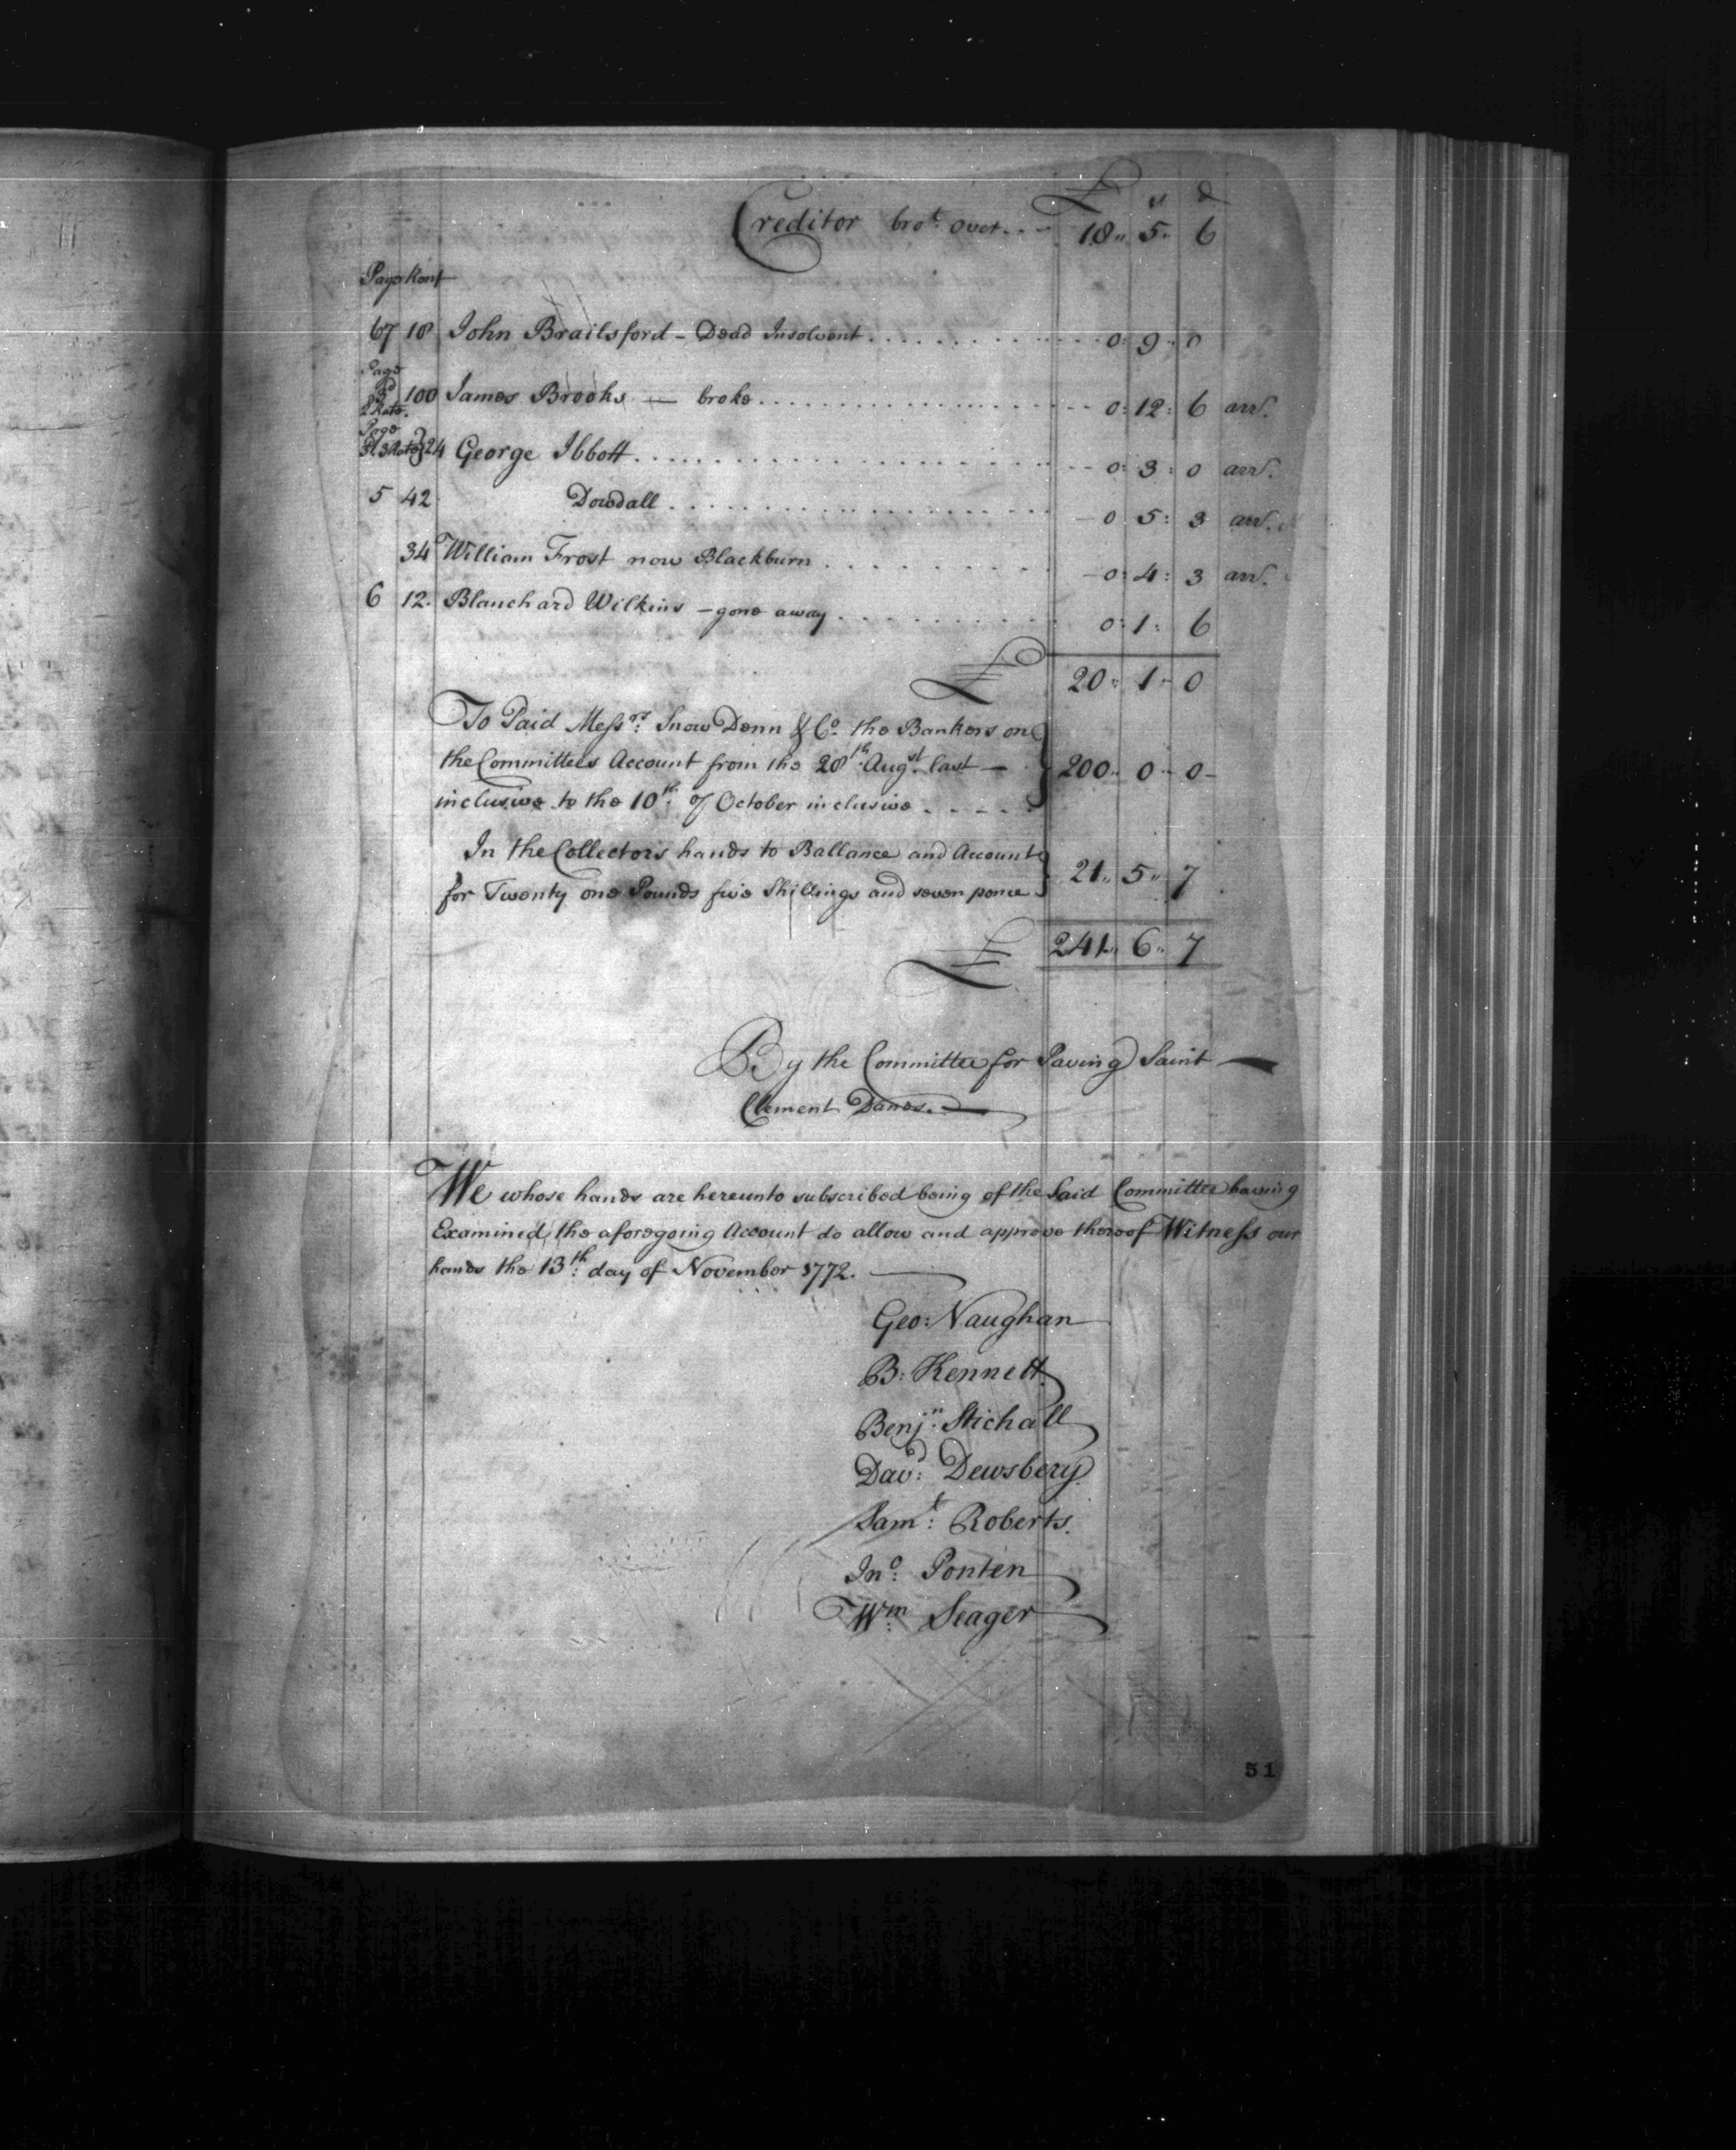 £ s d
Creditor bro.t over... 18,, 5,, 6
Page Rent
67 18 John Brailsford - Dead Insolvent.......... 0: 9,, 0
Page
3d 100 James Brooks — broke.................. 0: 12: 6 arr.
2 Rate.
Page
3 Rate 24 George Ibbott.................. 0: 3: 0 arr.
5 42 Dowdall.................. 0 5: 3 arr.
34 William Frost now Blackburn.......... 0: 4: 3 arr.
6 12. Blanchard Wilkins - gone away.......... 0: 1: 6
£ 20,, 1,, 0
To Paid Mess.rs Snow Denn & Co. the Bankers on
the Committees Account from the 28th Aug.st last — 200,, 0,, 0-
inclusive to the 10th. of October inclusive....
In the Collectors hands to Ballance and Account
for Twenty one Pounds five Shillings and seven pence 21,, 5,, 7
£ 241,, 6,, 7
By the Committee for Paving Saint —
Clement Danes. —
We whose hands are hereunto subscribed being of the Said Committee having
Examined the aforegoing Account do allow and approve thereof Witness our
hands the 13th. day of November 1772. —
Geo: Vaughan
B: Kennett
Benj.n Stichall
Dav.d: Dewsbery
Sam.l: Roberts.
Jno: Ponten
Wm. Seager
51